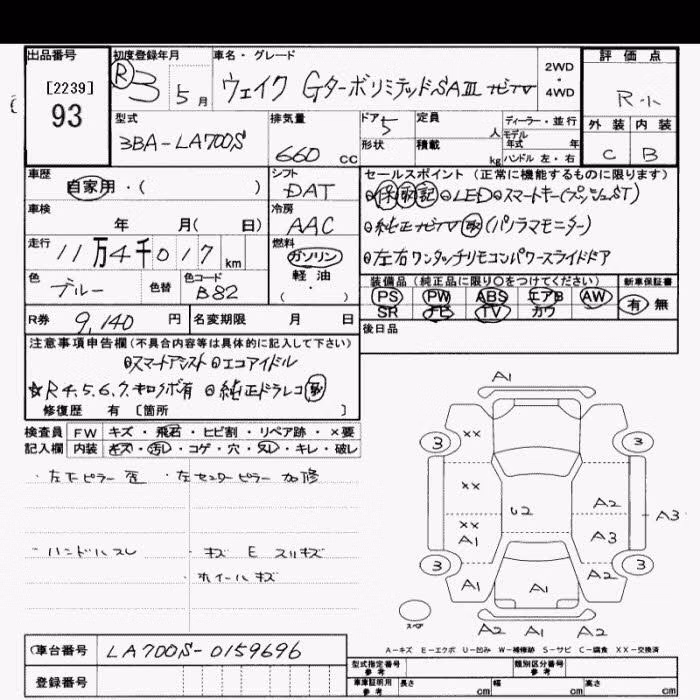 出品番号 初度登録年月 車名・グレード 評価点
[2239]
93
R3 5月 ウェイク GターボリミテッドSAⅢ ナビTV 2WD・4WD
R.小
型式 排気量 ドア 定員 ディーラー・並行 外装 内装
3BA-LA700S 660cc 5 人 モデル年式 年
形状 積載 kg ハンドル 左・右 C B
車歴 シフト セールスポイント(正常に機能するものに限ります)
自家用・( ) DAT ⊙保 取 記 ⊙LED⊙スマートキー(プッシュST)
車検 冷房
年 月( 日) AAC ⊙純正ナビTV(パノラマモニター)
走行 燃料
11万4千017km ガソリン ⊙左右ワンタッチリモコンパワースライドドア
色 色替 色コード 軽油 装備品(純正品に限り○をつけてください) 新車保証書
ブルー B82 ( ・ ) PS PW ABS エアB AW 有 無
SR ナビ TV カワ
R券 9,140円 名変期限 月 日 後日品
注意事項申告欄(不具合内容等は具体的に記入して下さい)
⊙スマートアシスト ⊙エコアイドル
☆R4.5.6.7.キロクボ有 ⊙純正ドラレコ
修復歴 有 [箇所 ]
検査員 FW キズ・飛石・ヒビ割・リペア跡・×要
記入欄 内装 キズ・汚レ・コゲ・穴・スレ・キレ・破レ
・左Fピラー歪 ・左センターピラー加修
・ハンドルスレ ・キズ E スリキズ
・ホイールキズ
A1
3 XX 3
XX U2 A2
XX A3 A3
A1
3 A2 3
A1 A1
スペア A2 A1 A2
A-キズ E-エクボ U-凹み W-補修跡 S-サビ C-腐食 XX-交換済
車台番号 LA700S-0159696 型式指定番号 参考 類別区分番号 参考
登録番号 車庫証明用 参考 長さ cm 幅 cm 高さ cm